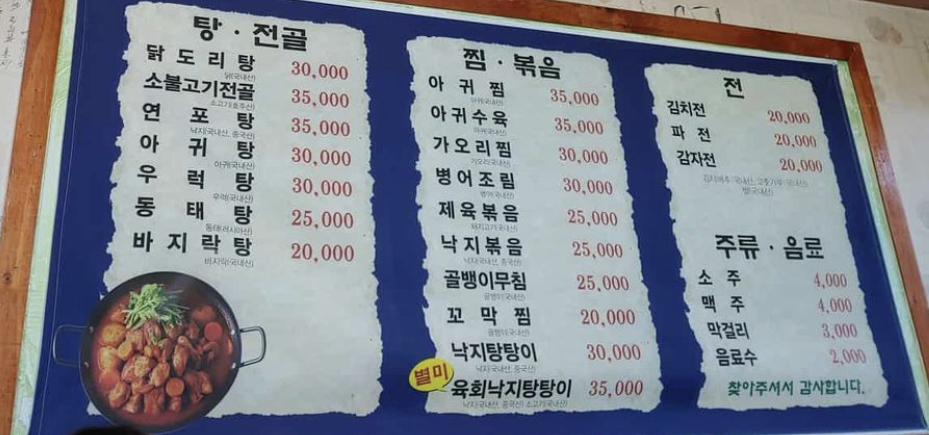 탕 · 전골
닭도리탕 30,000
닭(국내산)
소불고기전골 35,000
소고기(호주산)
연포탕 35,000
낙지(국내산, 중국산)
아귀탕 30,000
아귀(국내산)
우럭탕 30,000
우럭(국내산)
동태탕 25,000
동태(러시아산)
바지락탕 20,000
바지락(국내산)
찜 · 볶음
아귀찜 35,000
아귀(국내산)
아귀수육 35,000
아귀(국내산)
가오리찜 30,000
가오리(국내산)
병어조림 30,000
병어(국내산)
제육볶음 25,000
돼지고기(국내산)
낙지볶음 25,000
낙지(국내산, 중국산)
골뱅이무침 25,000
골뱅이(국내산)
꼬막찜 20,000
낙지탕탕이 30,000
낙지(국내산, 중국산)
별미 육회낙지탕탕이 35,000
낙지(국내산, 중국산) 소고기(국내산)
전
김치전 20,000
파전 20,000
감자전 20,000
쌀(국내산)
주류 · 음료
소주 4,000
맥주 4,000
막걸리 3,000
음료수 2,000
찾아주셔서 감사합니다.